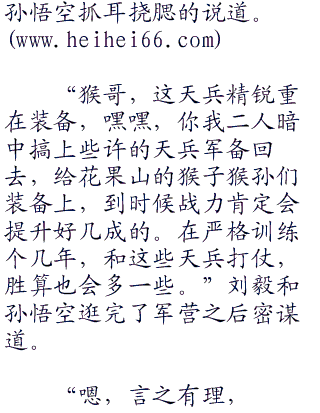 孙悟空抓耳挠腮的说道。
(www.heihei66.com)
“猴哥，这天兵精锐重
在装备，嘿嘿，你我二人暗
中搞上些许的天兵军备回
去，给花果山的猴子猴孙们
装备上，到时候战力肯定会
提升好几成的。在严格训练
个几年，和这些天兵打仗，
胜算也会多一些。”刘毅和
孙悟空逛完了军营之后密谋
道。
“嗯，言之有理，